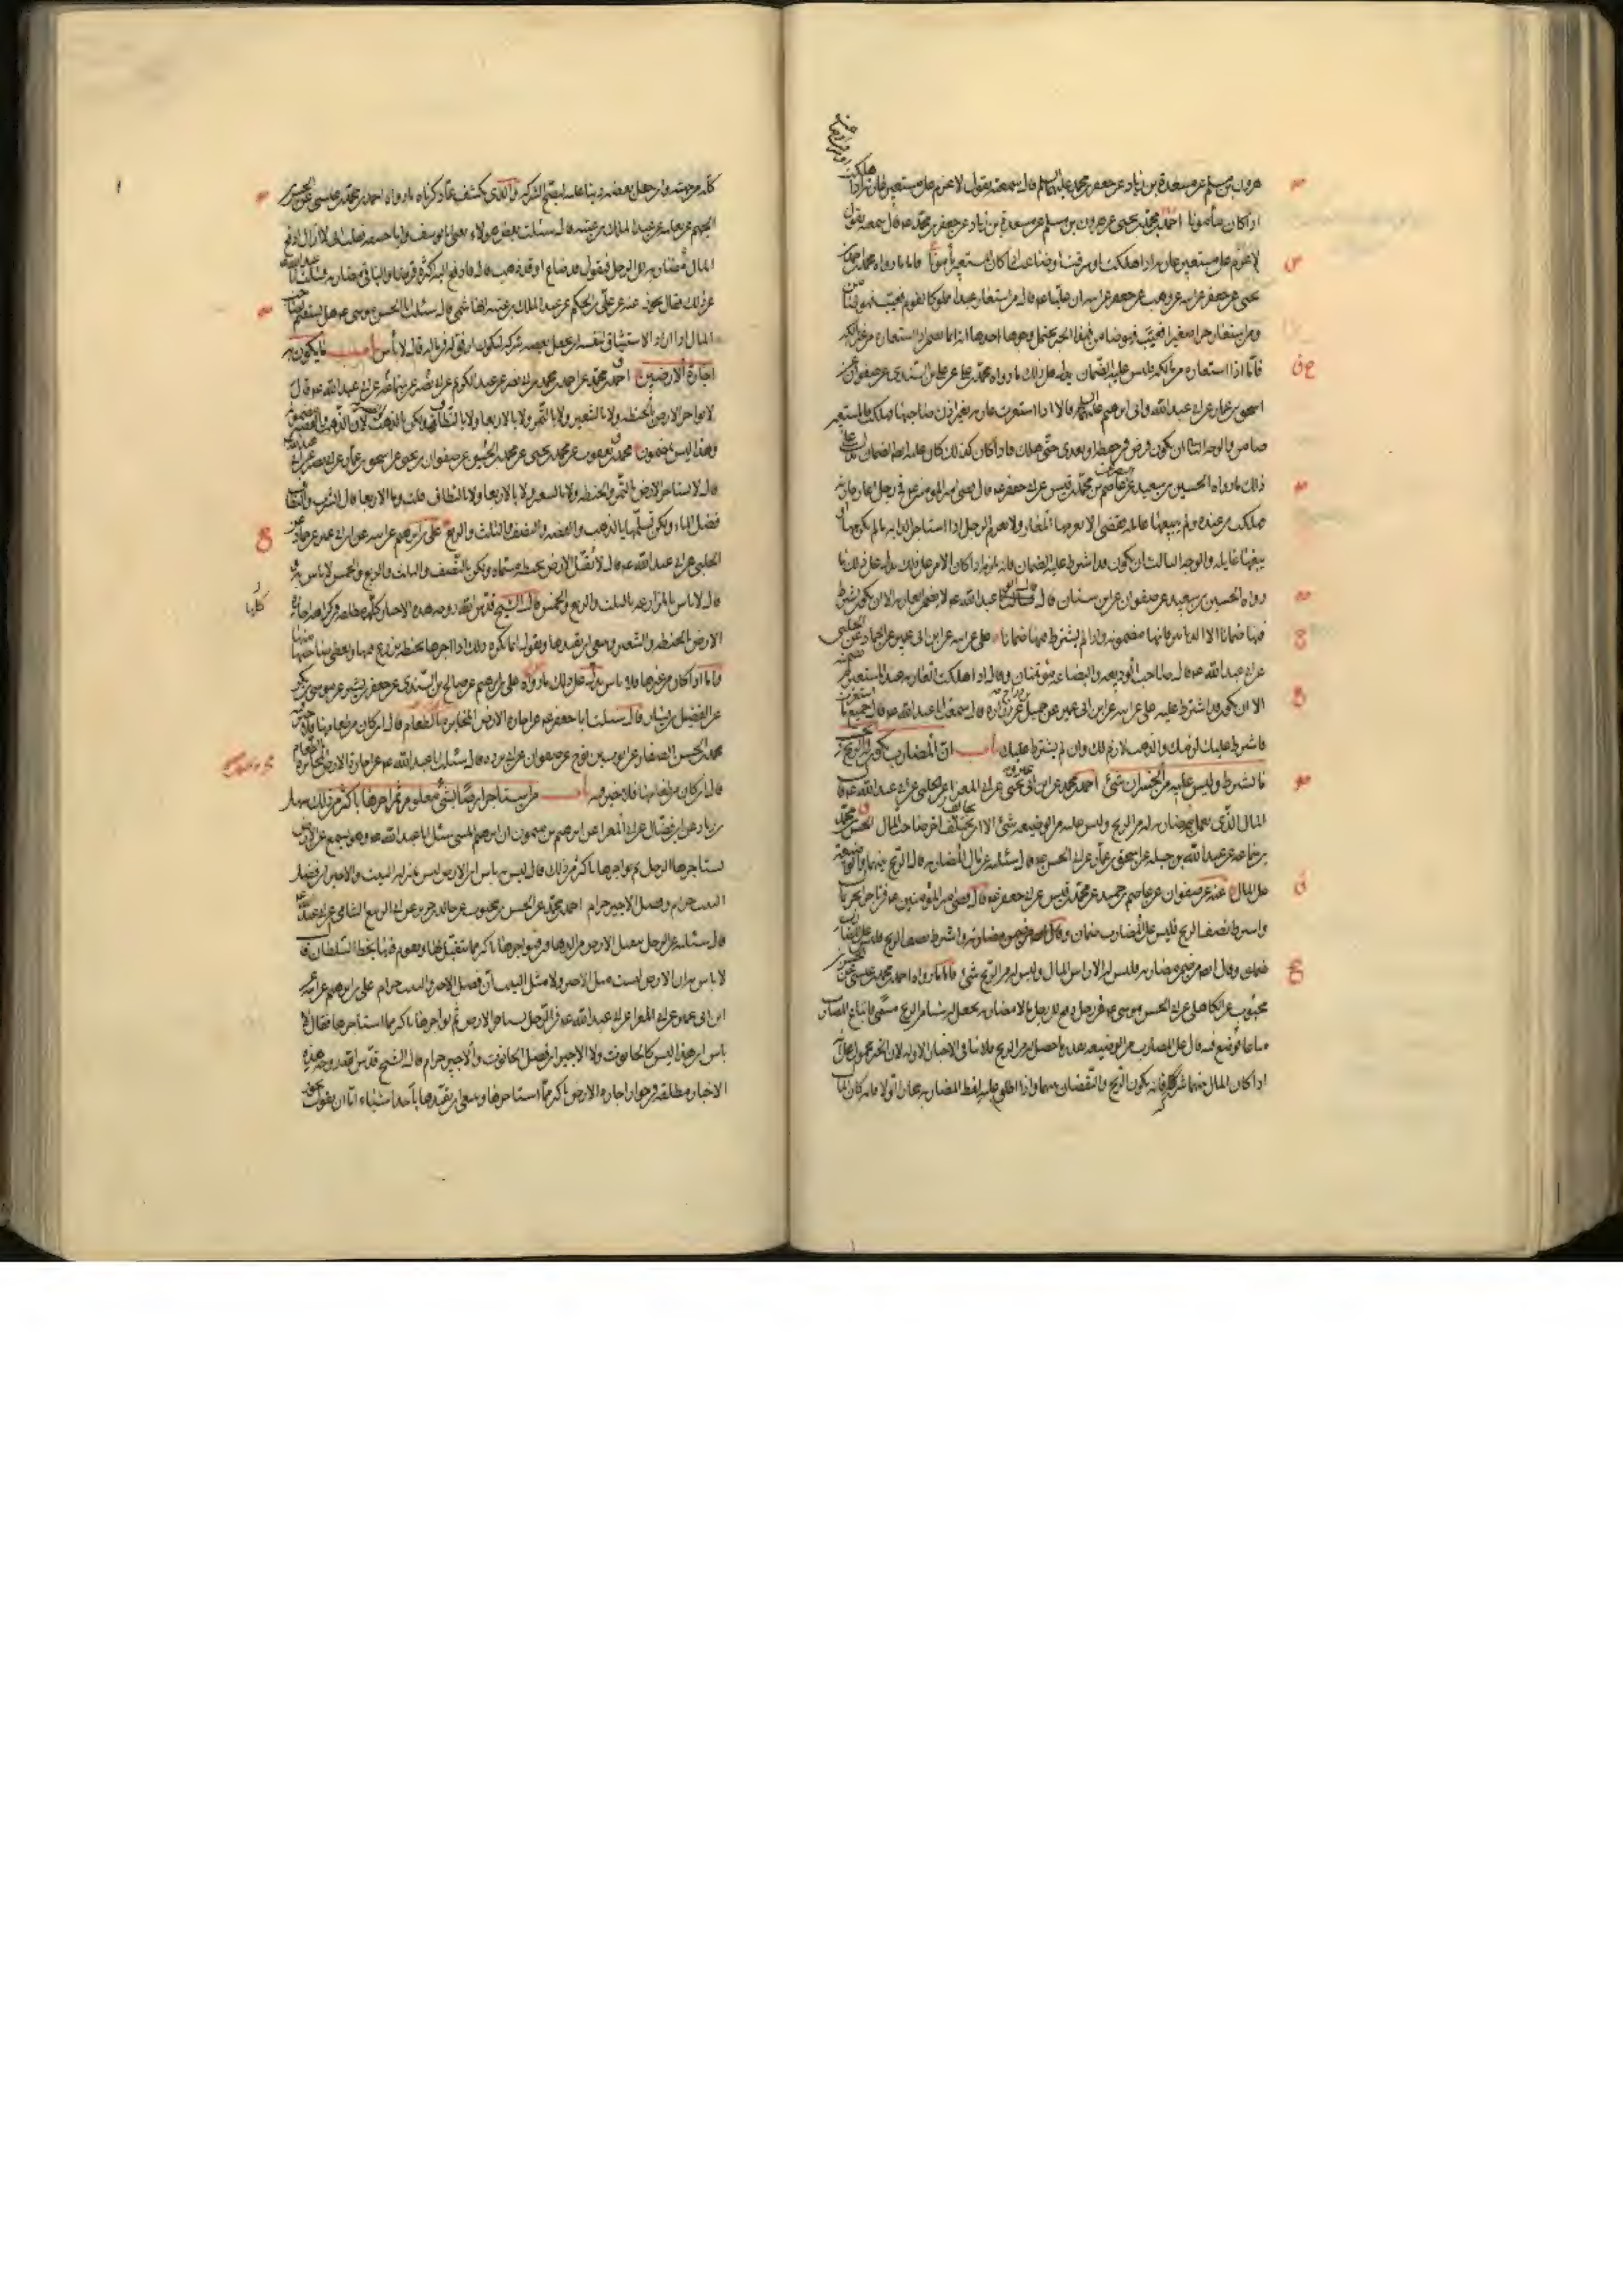 هرون بن مسلم عن مسعدة بن زياد عن جعفر بن محمد عليهما السلم قال سمعته يقول لا غرم على مستعير عارية اذا هلكت
اذا كان مأمونا احمد بن محمد بن يحيى عن هرون بن مسلم عن مسعدة بن زياد عن جعفر بن محمد ع قال سمعته يقول
لا غرم على مستعير عارية اذا هلكت او سرقت او ضاعت اذا كان المستعير مأمونا فاما ما رواه محمد بن
يحيى عن جعفر عن ابيه عن وهب عن جعفر عن ابيه ان عليا ع قال من استعار عبدا مملوكا لقوم فعيب فهو ضامن
ومن استعار حرا صغيرا فعيب فهو ضامن فهذا الخبر يحتمل وجوها احدها انه انما ضمن اذا استعاره من غير مالكه
فاما اذا استعاره من مالكه فليس عليه الضمان يدل على ذلك ما رواه محمد بن علي عن علي بن السندي عن صفوان عن
اسحق بن عمار عن ابي عبد الله وابي ابرهيم عليهما السلم قالا اذا استعرت عارية بغير اذن صاحبها فهلكت فالمستعير
ضامن والوجه الثاني ان يكون فرط في حفظه او تعدى حتى هلك فاذا كان كذلك كان عليه ايضا الضمان يدل على
ذلك ما رواه الحسين بن سعيد عن عاصم بن محمد بن قيس عن ابي جعفر ع قال قضى امير المؤمنين ع في رجل اعار جارية
هلكت من عنده ولم يبغها غايلة فقضى الا يغرمها المعار ولا يغرم الرجل اذا استاجر الدابة ما لم يكرهها او
يبغها غايلة والوجه الثالث ان يكون قد اشترط عليه الضمان فانه يلزمه اذا كان الامر على ذلك يدل على ذلك ما
رواه الحسين بن سعيد عن صفوان عن ابن سنان قال قال ابو عبد الله ع لا تضمن العارية الا ان يكون اشترط
فيها ضمانا الا الدنانير فانها مضمونة وان لم يشترط فيها ضمانا علي عن ابيه عن ابن ابي عمير عن حماد عن الحلبي
عن ابي عبد الله ع قال صاحب الوديعة والبضاعة مؤتمنان وقال اذا هلكت العارية عند المستعير لم يضمنه
الا ان يكون قد اشترط عليه علي عن ابيه عن ابن ابي عمير عن جميل عن زرارة قال سمعت ابا عبد الله ع قال جميع ما استعرت
فاشترط عليك لزمك والذهب لازم لك وان لم يشترط عليك باب ان المضارب يكون له الربح بحسب
ما يشترط وليس عليه من الخسران شئ احمد بن محمد عن ابن ابي عمير عن ابي المغرا عن الحلبي عن ابي عبد الله ع قال
المال الذي يعمل به مضاربة له من الربح وليس عليه من الوضيعة شئ الا ان يخالف امر صاحب المال الحسن بن محمد
بن سماعة عن عبد الله بن جبلة عن اسحق بن عمار عن ابي الحسن ع قال سئلته عن مال المضاربة قال الربح بينهما والوضيعة
على المال عنه عن صفوان عن عاصم بن حميد عن محمد بن قيس عن ابي جعفر ع قال قضى امير المؤمنين ع في تاجر اتجر بمال
واشترط نصف الربح فليس على المضارب ضمان وقال ايضا من ضمن مضاربه واشترط نصف الربح فليس على المضارب
ضمان وقال ايضا من ضمن مضاربه فليس له الا راس المال وليس له من الربح شئ فاما ما رواه احمد بن محمد بن عيسى عن الحسن بن
محبوب عن الكاهلي عن ابي الحسن موسى ع في رجل دفع الى رجل مالا مضاربة فجعل له شيئا من الربح مسمى فابتاع المضارب
متاعا فوضع فيه قال على المضارب من الوضيعة بقدر ما جعل له من الربح فلا ينافي الاخبار الاولة لان الخبر محمول على انه
اذا كان المال بينهما شركة فانه يكون الربح والنقصان بينهما وانما اطلق عليه لفظ المضاربة مجازا
كله من جهته وان جعل بعضه دينا عليه لتصح الشركة والذي يكشف عما ذكرناه ما رواه احمد بن محمد بن عيسى عن الحسن بن
الجهم عن ثعلبة عن عبد الملك بن عتبة قال سئلت بعض هؤلاء يعني ابا يوسف وابا حنيفة فقلت اني لا ازال ادفع
المال مضاربة الى الرجل فيقول قد ضاع او قد ذهب قال فادفع اليه اكثره قرضا والباقي مضاربة فسئلت ابا عبد الله ع
عن ذلك فقال يجوز عنه عن علي بن الحكم عن عبد الملك بن عتبة الهاشمي قال سئلت ابا الحسن موسى ع هل يستقيم لصاحب
المال اذا اراد الاستيثاق لنفسه ان يجعل بعضه شركة ليكون اوثق له في ماله قال لا بأس باب ما يكون به
اجارة الارضين احمد بن محمد عن احمد بن محمد بن ابي نصر عن عبد الكريم عن ابي بصير عن ابي عبد الله ع قال
لا تواجر الارض بالحنطة ولا بالشعير ولا بالتمر ولا بالاربعا ولا بالنطاف ولكن بالذهب والفضة لان الذهب والفضة مضمون
وهذا ليس بمضمون محمد بن يعقوب عن محمد بن يحيى عن محمد بن الحسين عن صفوان بن يحيى عن اسحق بن عمار عن ابي بصير عن ابي عبد الله ع
قال لا تستاجر الارض بالتمر ولا بالحنطة ولا بالشعير ولا بالاربعا ولا بالنطاف قلت وما الاربعا قال الشرب والنطاف
فضل الماء ولكن تقبلها بالذهب والفضة والنصف والثلث والربع علي بن ابرهيم عن ابيه عن ابن ابي عمير عن حماد عن
الحلبي عن ابي عبد الله ع قال لا تقبل الارض بحنطة مسماة ولكن بالنصف والثلث والربع والخمس لا باس به و
قال لا باس بالمزارعة بالثلث والربع والخمس قال الشيخ قدس الله روحه هذه الاخبار كلها مطلقة في كراهية اجارة
الارض بالحنطة والشعير وينبغي ان نقيدها ونقول انما يكره ذلك اذا اجرها بحنطة يزرع فيها ويعطى صاحبها منها
فاما اذا كان من غيرها فلا باس يدل على ذلك ما رواه علي بن ابرهيم عن صالح بن السندي عن جعفر بن بشير عن موسى بن بكر
عن الفضيل بن يسار قال سئلت ابا جعفر ع عن اجارة الارض المخابرة بالطعام قال ان كان من طعامها فلا خير فيه
محمد بن الحسن الصفار عن ايوب بن نوح عن صفوان عن ابي بردة قال سئلت ابا عبد الله ع عن اجارة الارض المخابرة بالطعام
قال ان كان من طعامها فلا خير فيه باب من استاجر ارضا بشئ معلوم ثم اجرها باكثر من ذلك سهل
بن زياد عن ابن فضال عن ابي المغرا عن ابرهيم بن ميمون ان ابرهيم بن المثنى سئل ابا عبد الله ع وهو يسمع عن الارض
يستاجرها الرجل ثم يواجرها باكثر من ذلك قال ليس به باس ان الارض ليس بمنزلة البيت والاجير ان فضل
البيت حرام وفضل الاجير حرام احمد بن محمد عن الحسن بن محبوب عن خالد بن جرير عن ابي الربيع الشامي عن ابي عبد الله ع
قال سئلته عن الرجل يتقبل الارض من الدهاقين فيواجرها باكثر مما يتقبلها ويقوم فيها بحظ السلطان قال
لا باس به ان الارض ليست مثل الاجير ولا مثل البيت ان فضل الاجير والبيت حرام علي بن ابرهيم عن ابيه عن
ابن ابي عمير عن ابي المغرا عن ابي عبد الله ع في الرجل يستاجر الارض ثم يواجرها باكثر مما استاجرها فقال لا
باس ان هذا ليس كالحانوت ولا الاجير ان فضل الحانوت والاجير حرام قال الشيخ قدس الله روحه هذه
الاخبار مطلقة في جواز اجارة الارض باكثر مما استاجرها وينبغي ان نقيدها باحد اشياء اما ان نقول يجوز